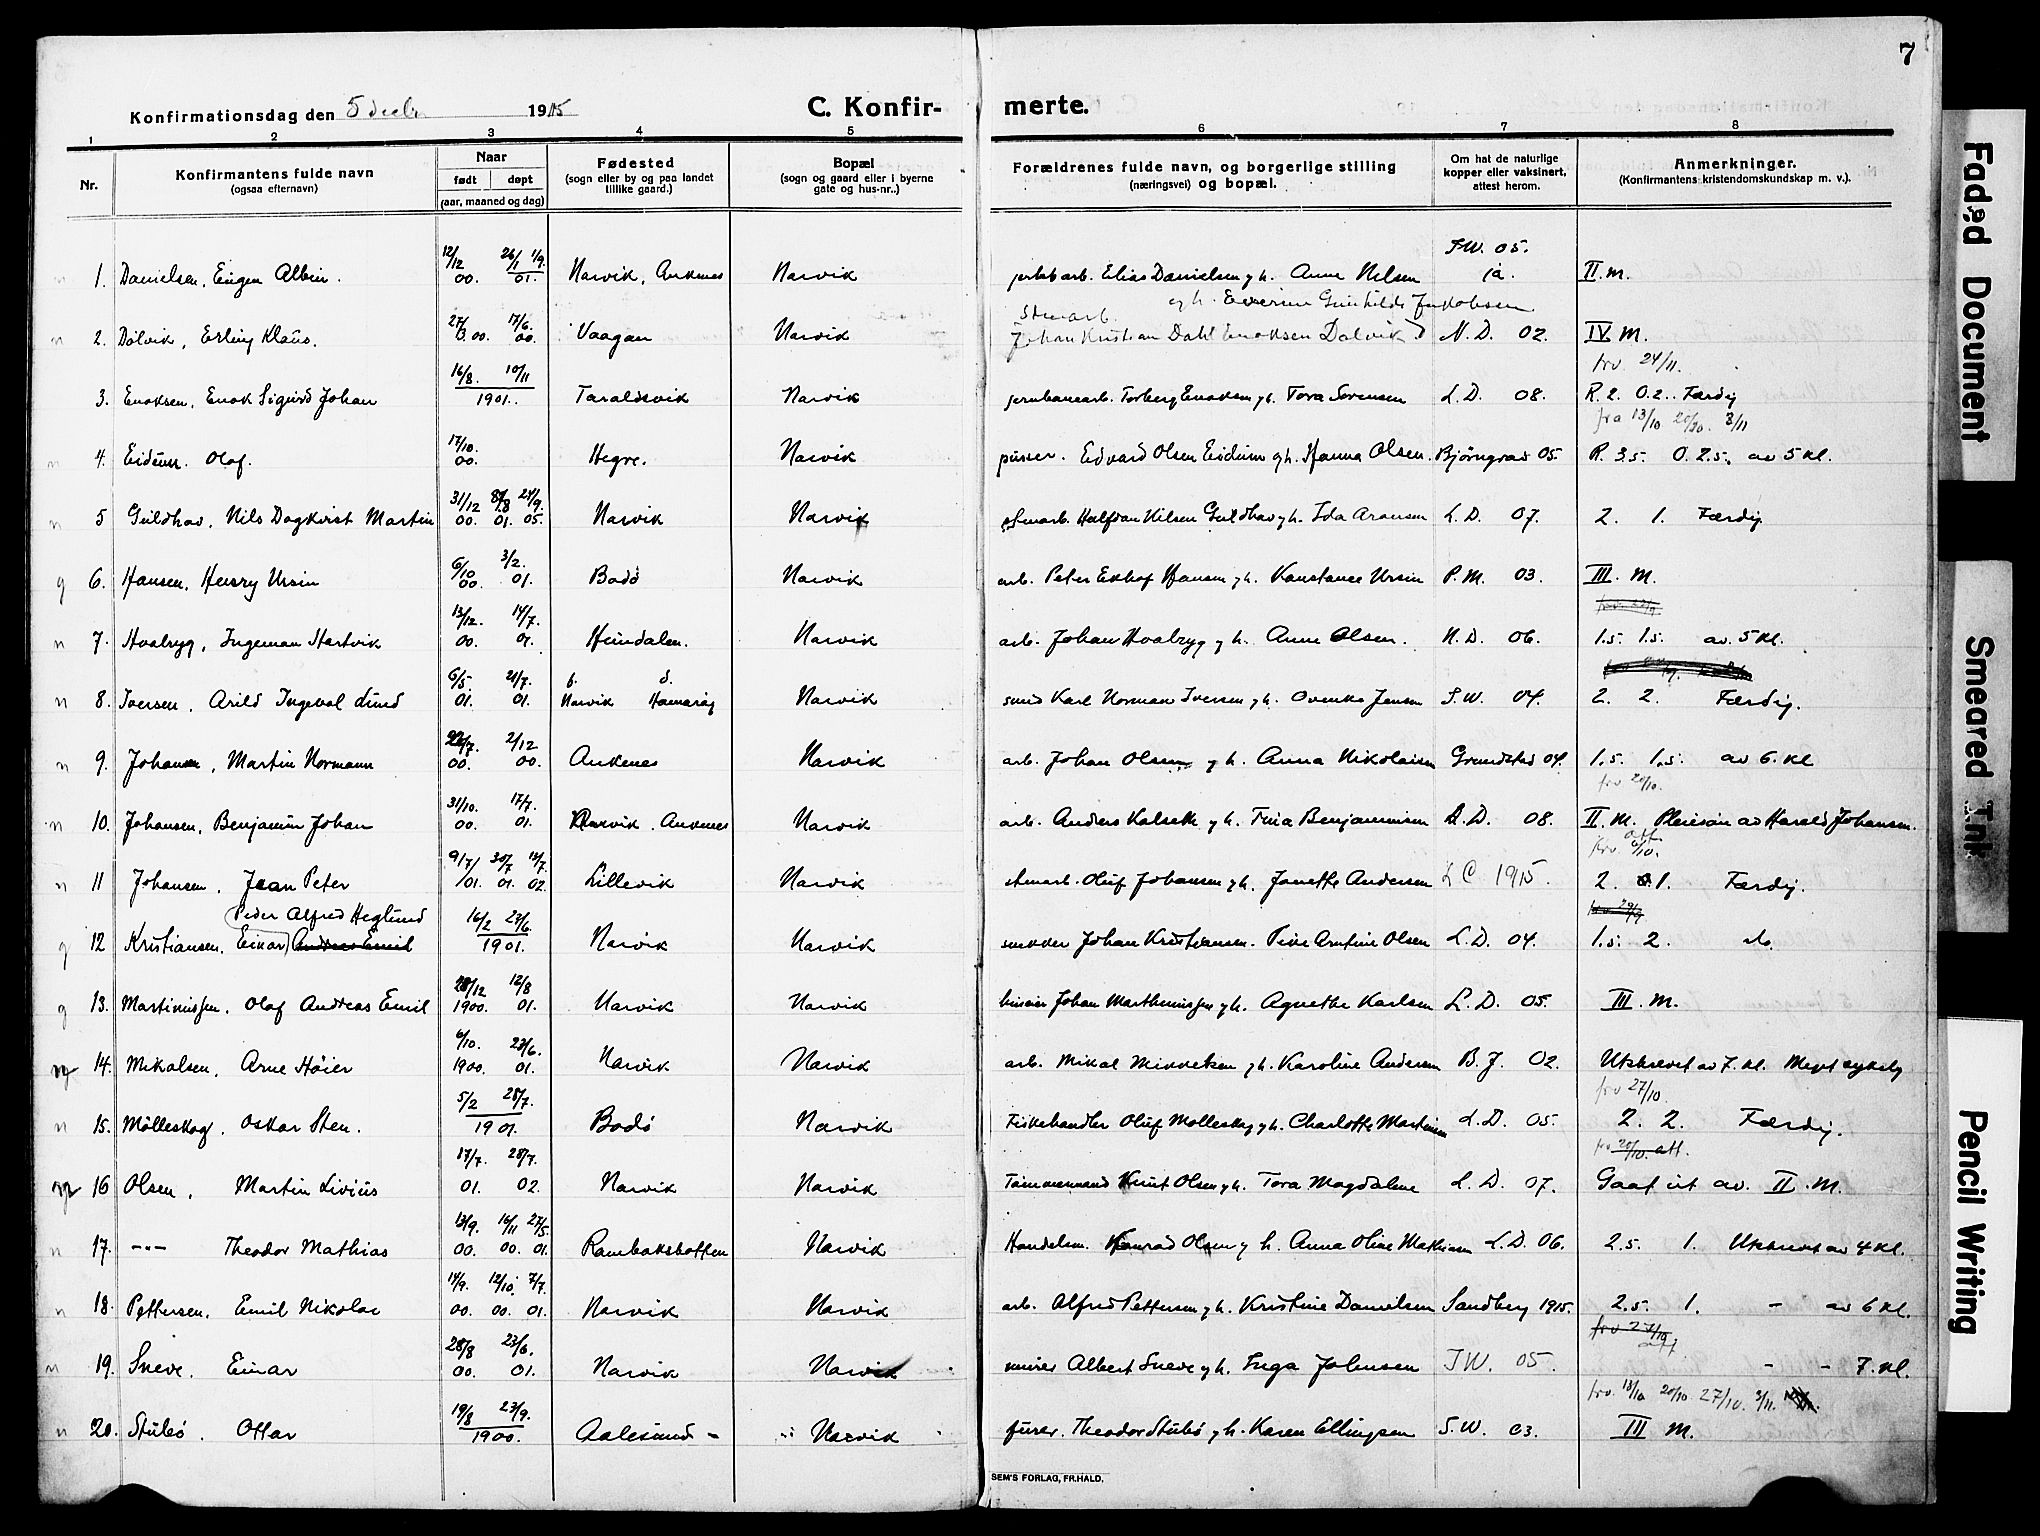 7
Konfirmationsdag den 5 decbr 1915 C. Konfir- merte.
1 2 3 4 5 6 7 8
Nr. Konfirmantens fulde navn (ogsaa efternavn) Naar født døpt (aar, maaned og dag) Fødested (sogn eller by og paa landet tillike gaard.) Bopæl (sogn og gaard eller i byerne gate og hus-nr..) Forældrenes fulde navn, og borgerlige stilling (næringsvei) og bopæl. Om hat de naturlige kopper eller vaksinert, attest herom. Anmerkninger. (Konfirmantens kristendomskundskap m. v.).
n 1. Danielsen, Eugen Albin. 12/12 00. 26/1 1/9 01. Narvik, Ankenes Narvik Elias Danielsen gh. Anne Nilsen I.W. 05. ja. II. m.
n 2. Dalvik, Erling Klaus. 27/3. 00. 17/6. 00. Vaagan Narvik Johan Kristian Dahl Enoksen Dalvik N. D. 02. IV. M.
frv. 24/11.
3. Enoksen, Enok Sigurd Johan 16/8. 10/11 1901. Taraldsvik Narvik jernbanearb. Torberg Enoksen gh. Tora Sørensen L. D. 08. R. 2. O. 2.. Færdig
fra 13/10 20/10. 3/11
n 4. Eidum. Olaf. 17/10. 00. Hegre. Narvik pusser. Edvard Olsen Eidum gh. Hanna Olsen. Bjørngrad 05. R. 3.5. O. 2.5. av 5 kl.
n 5 Guldhav, Nils Dagkvist Martin 31/12 00. 01. 05. Narvik Narvik Halfdan Nilsen Guldhav gh. Ida Aronsen L. D. 07. 2. 1. Færdig
g 6. Hansen, Henry Ursin 6/10 00. 3/2. 01. Bodø Narvik arb. Peter Ekhof Hansen gh. Konstance Ursin P. M. 03. III. M.
n 7. Hoalryg, Ingeman Hartvik 13/12. 00. 14/7. 01. Heindalen. Narvik arb. Johan Hoalryg gh. Anne Olsen. N. D. 06. 1.5. 1.5. av. 5 kl.
n 8. Iversen, Arild Ingeval Lund 6/5 01. 21/7. 01. Narvik Hamarøy Narvik smed Karl Norman Iversen gh. Ovenke Jensen S. W. 04. 2. 2. Færdig.
n 9. Johansen, Martin Normann 00. 2/12 00. Ankenes Narvik arb. Johan Olsen gh. Anna Nikolaisen Grundstad 04. 1.5. 1.5. av 6. kl
frv 20/10.
n 10. Johansen, Benjamin Johan 31/10. 00. 17/7. 01. Narvik. Ankenes Narvik arb. Anders Kalseth gh. Trina Benjaminsen L. D. 08. II. M. Pleiesøn av Harald Johansen.
n 11 Johansen, Jean Peter 9/7 01. 30/7 01. 13/7. 02. Lillevik Narvik Oluf Johansen gh. Janette Andersen L C 1915. 2. 1. Færdig.
Peder Alfred Heglund
g 12 Kristiansen, Einar Andreas Emil 16/2 23/6. 1901. Narvik Narvik snekker Johan Kristiansen. Pine Arntine Olsen L. D. 04. 1.5. 2. do.
g 13. Martinussen. Olaf Andreas Emil 28/12 1900. 12/8 01. Narvik Narvik Johan Marthinussen gh. Agnethe Karlsen L. D. 05. III. M.
14. Mikalsen, Arne Høier 6/10. 1900. 23/6. 01. Narvik Narvik arb. Mikal Mikkelsen gh. Karoline Andersen B. J. 02. Utskrevet av 7. kl. Meget sykelig
frv 27/10.
n 15. Mølleskog, Oskar Sten. 5/2 28/7. 1901. Bodø Narvik Fiskehandler Oluf Mølleskog gh. Charlotte Martinsen L. D. 05. 2. 2. Færdig.
frv. 20/10. att.
16 Olsen, Martin Livius 17/7. 01. 28/7. 02. Narvik Narvik Tømmermand Knut Olsen gh. Tora Magdalene L. D. 07. Gaat ut av II. M.
n 17. -"- Theodor Mathias 13/9. 00. 16/11 00. 27/5. 01. Rombaksbotten Narvik Handelsm. Konrad Olsen g h. Anna Oline Mathisen L. D. 06. 2.5. 1. Utskrevet av 4 kl.
n 18. Pettersen, Emil Nikolai 14/9. 00. 12/10. 00. 7/7. 01. Narvik Narvik arb. Alfred Pettersen gh. Kristine Danielsen Sandberg 1915. 2.5. 1. - av 6 kl.
n 19. Sneve. Einar 28/8 00. 23/6. 01. Narvik Narvik murer Albert Sneve gh. Inga Johnsen I W. 05. - - 7. kl.
frv. 13/10 20/10 27/10. 3/11.
n 20. Stubø. Ottar 19/8 23/9. 1900. Aalesund - Narvik furer. Theodor Stubø gh. Karen Ellingsen S. W. 03. III M.
SEM'S FORLAG, FR.HALD.
Faded Document
Smeared Ink
Pencil Writing